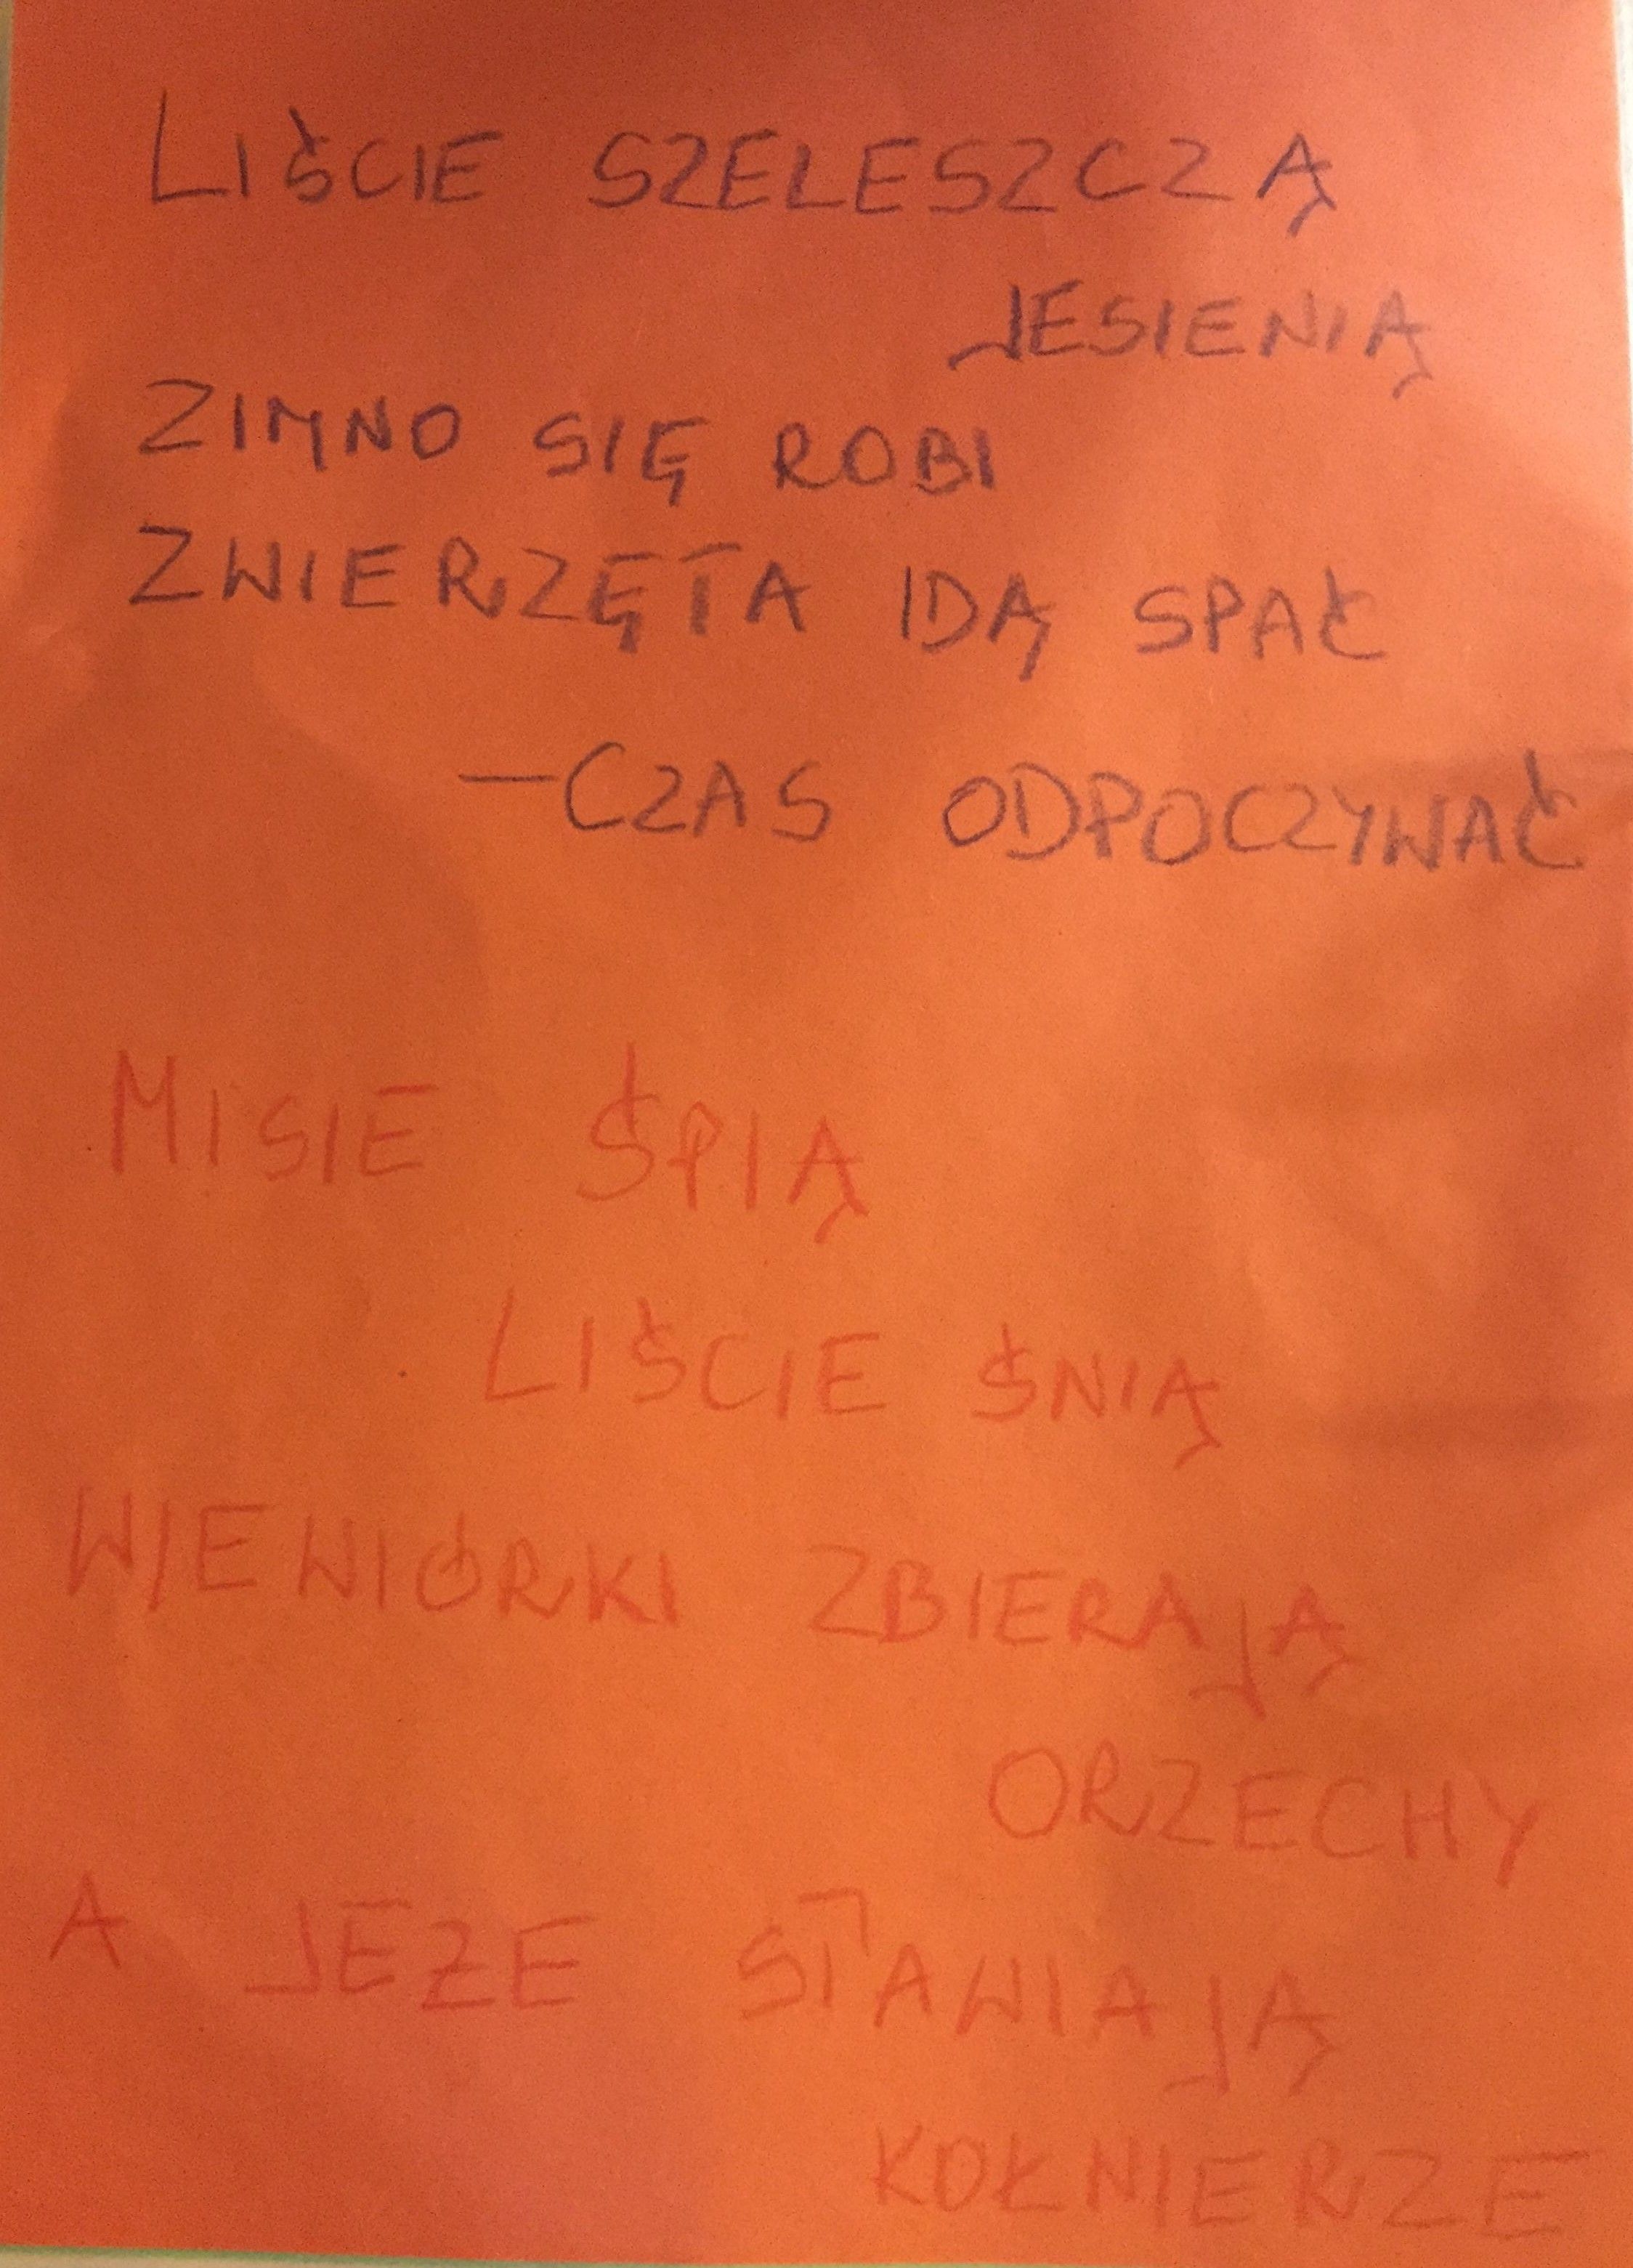 LIŚCIE SZELESZCZĄ
JESIENIĄ
ZIMNO SIĘ ROBI
ZWIERZĘTA IDĄ SPAĆ
—CZAS ODPOCZYWAĆ
MISIE ŚPIĄ
LIŚCIE ŚNIĄ
WIEWIÓRKI ZBIERAJĄ
ORZECHY
A JEŻE STAWIAJĄ
KOŁNIERZE